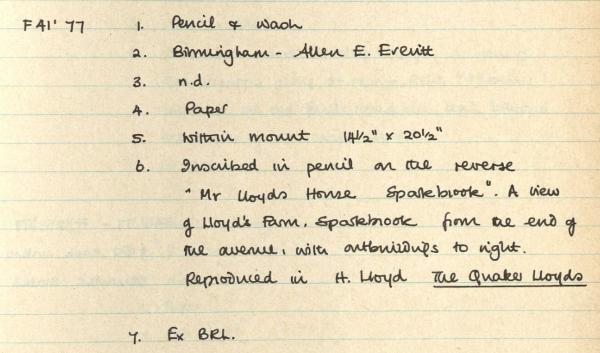 F41' 77 1. Pencil & Wash
2. Birmingham - Allen E. Everitt
3. n.d.
4. Paper
5. Within mount 14½" x 20½"
6. Inscribed in pencil on the reverse
"Mr Lloyds House Sparkbrook". A view
of Lloyd's Farm, Sparkbrook from the end of
the avenue, with outbuildings to right.
Reproduced in H. Lloyd The Quaker Lloyds
7. Ex BRL.